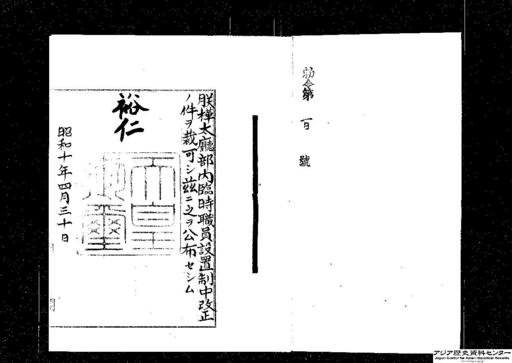 勅令第一百號
朕樺太廳部内臨時職員設置制中改正
ノ件ヲ裁可シ茲ニ之ヲ公布セシム
裕仁
天皇御璽
昭和十年四月三十日
アジア歴史資料センター
Japan Center for Asian Historical Records